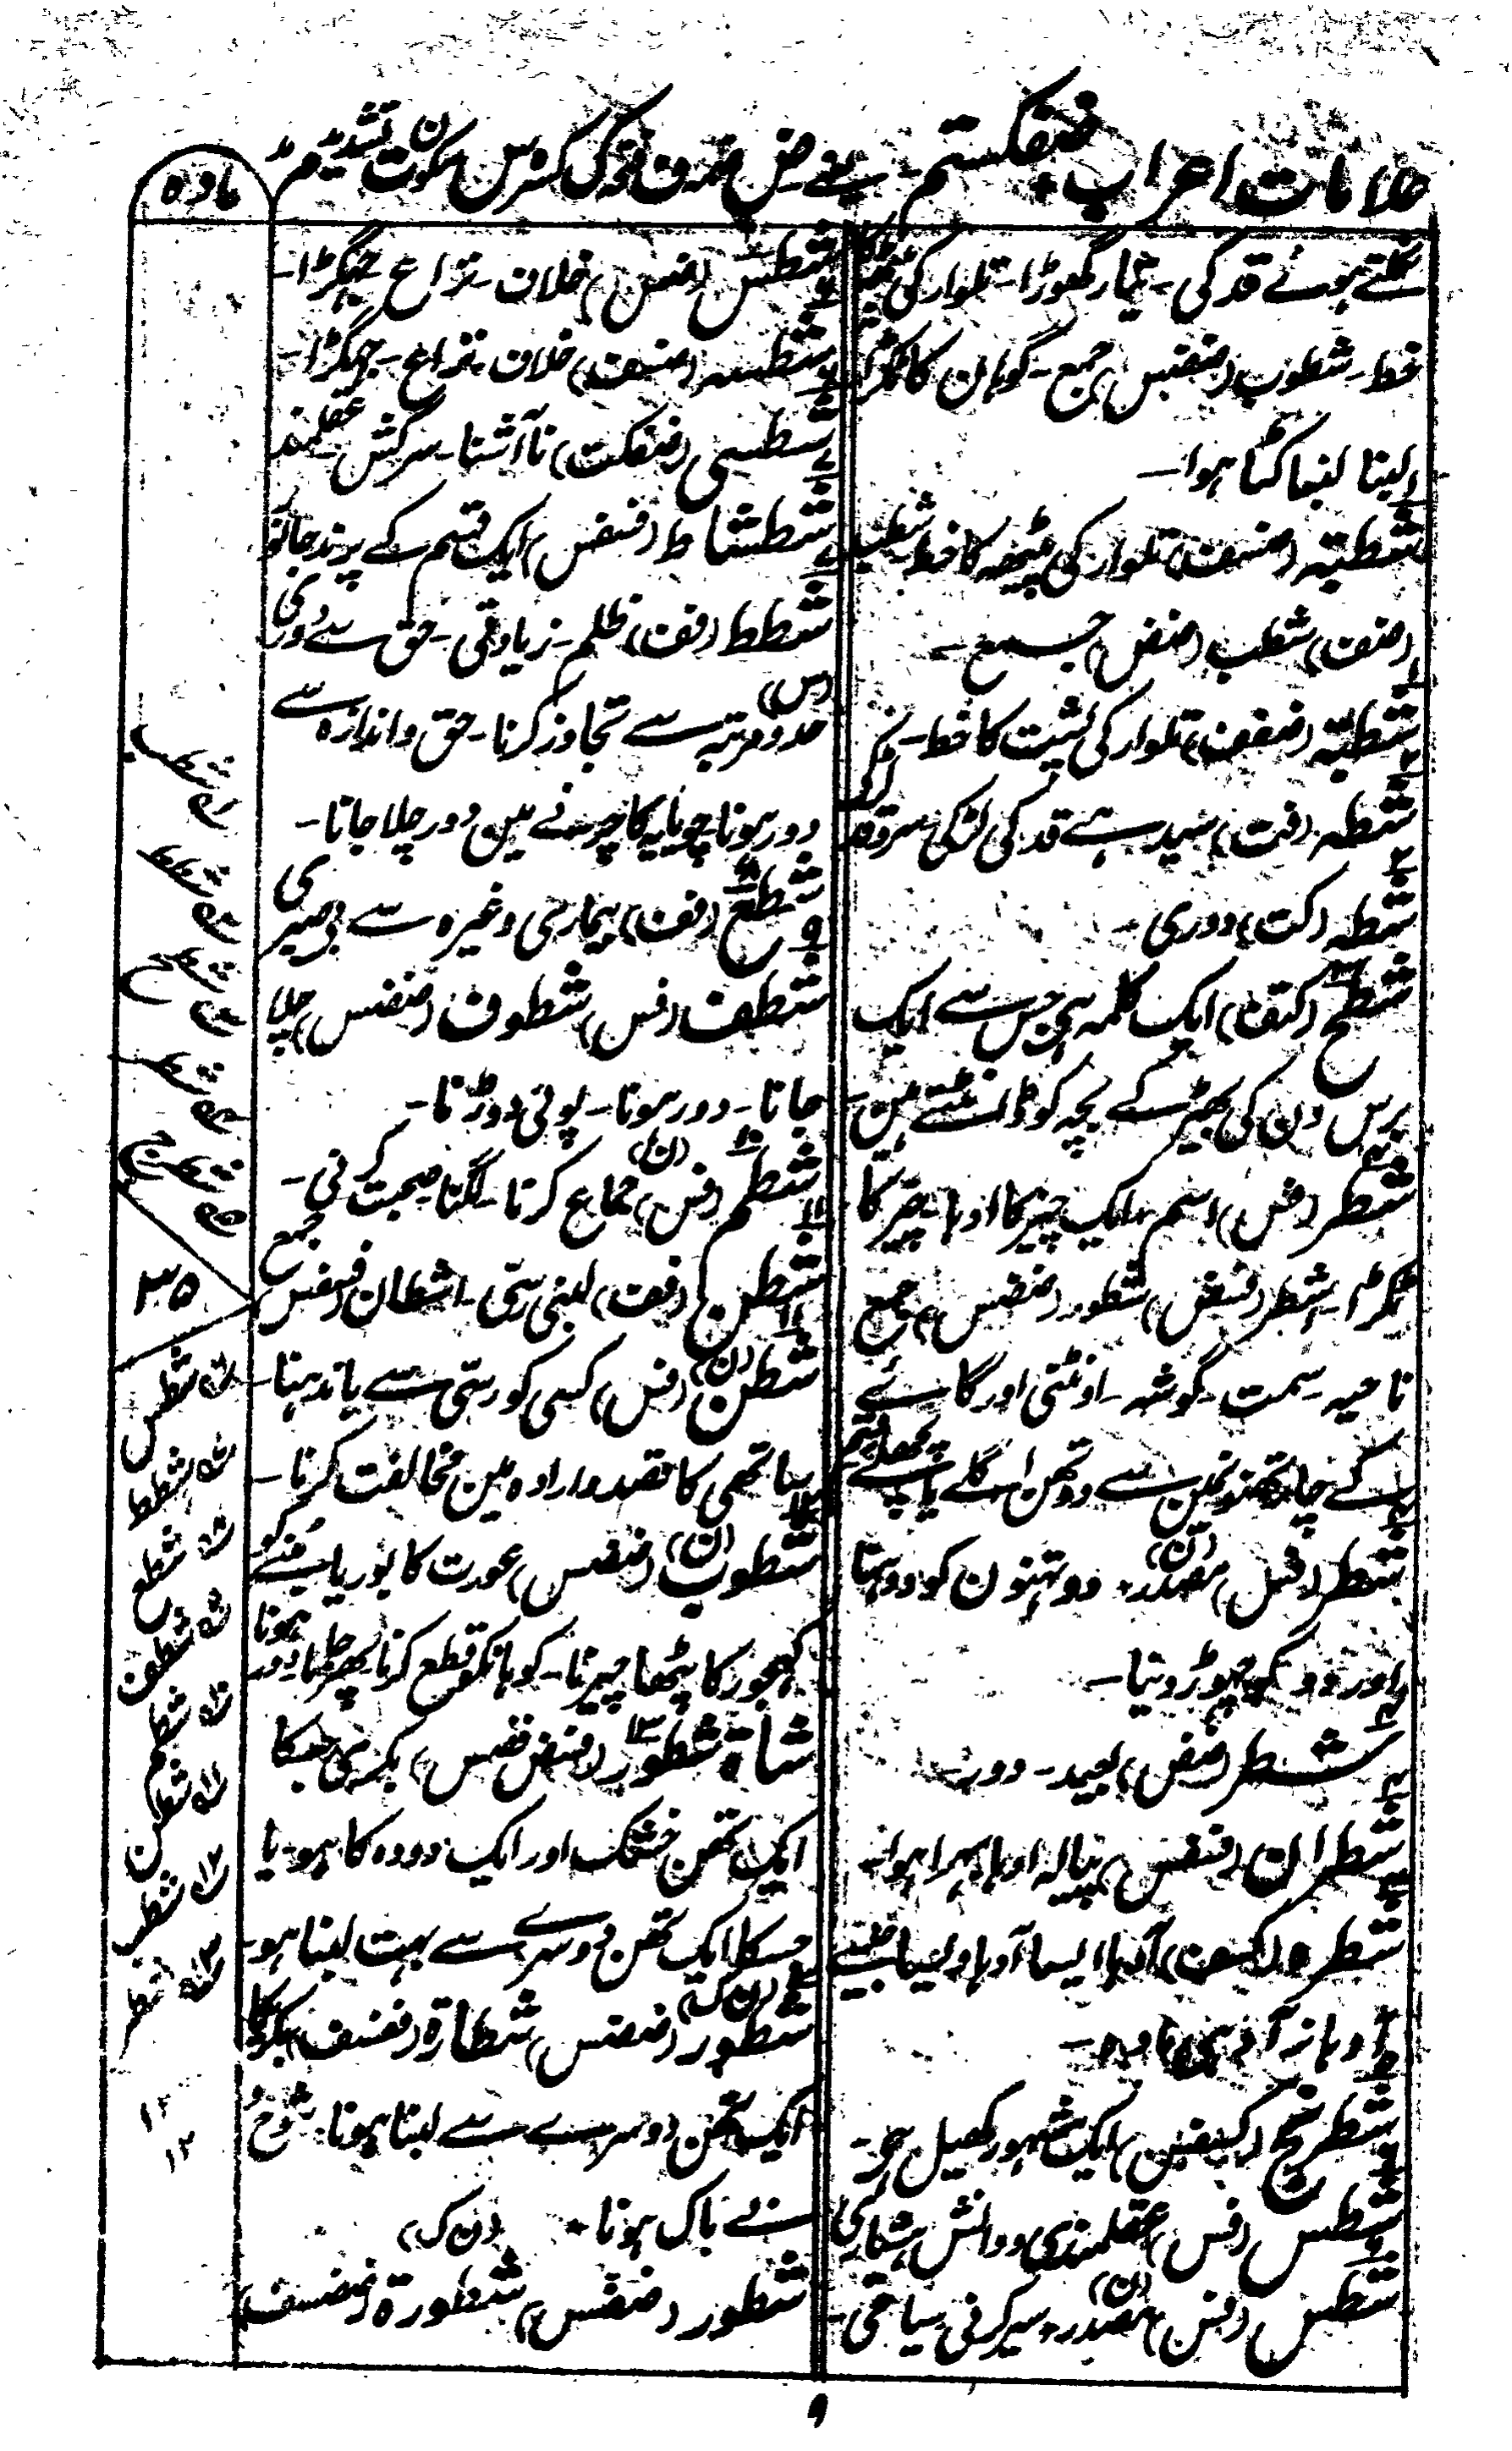 علامات اعراب فتفکستم یعنے ض ضمہ ف فتحہ ک کسرہ س سکون ت تشدید م مد
مادہ
نکلتے ہوئے قد کی۔ تیار گھوڑا۔ تلوار کی
خط۔ شطوب (ضفنس) جمع۔ کوہان کا ٹکڑا
لینا لنبا کٹا ہوا۔
شطبتہ (ضسف) تلوار کی پیٹھ کا خط
(ضف) شطب (ضفض) جمع۔
شطبتہ (ضففت) تلوار کی پشت کا خط۔
شطہ (فت) سیدہے قد کی لڑکی سروقد
شطہ (کت) دوری۔
شطح (کتف) ایک کلمہ ہی جس سے ایک
برس دن کی بھیڑ کے بچہ کو ڈانٹتے ہین۔
شطر (فس) اسم، ایک چیز کا ادہا۔ چیز کا
ٹکڑا۔ اشطر (فسفض) شطور (ضضس) جمع
ناحیہ۔ سمت۔ گوشہ۔ اونٹنی اور گائے
کے چار تھنونمین سے دو تھن اگلے یا پچھلے
شطر (فس) مصدر، (ن) دو تہنون کو دوہنا
اور دو کو چھوڑ دینا۔
شطر (ضفض) بعید۔ دور۔
شطران (فسفس) پیالہ ادہا بہرا ہوا۔
شطرہ (کسف) آدہا ایسا آدہا ویسا جیسے
آدہا نر آدہی مادہ۔
شطرنج (کسفس) ایک مشہور کھیل ہی۔
شطس (فس) عقلمندی و دانش ہشیاری
شطس (فس) مصدر، (ن) سیر کرنی سیاحی۔
شطس (ضس) خلاف۔ نزاع۔ جھگڑا۔
شطسہ (ضسف) خلاف۔ نزاع۔ جھگڑا۔
شطسی (ضفکت) نا آشنا۔ سرکش۔ عقلمند
شطشاط (فسفس) ایک قسم کے پرند جانور
شطط (فف) ظلم۔ زیادتی۔ حق سے دوری
(س) حد و مرتبہ سے تجاوز کرنا۔ حق و اندازہ سے
دور ہونا چوپایہ کا چرنے مین دور چلا جانا۔
شطع (فف) بیماری وغیرہ سے بی صبری
شطف (فس) شطوف (ضضس) چلا
جانا۔ دور ہونا۔ پوئی دوڑنا۔
شطم (فس) (ن) جماع کرنا۔ لگنا صحبت کرنی۔
شطن (فف) لنبی رسی۔ اشطان (فسفس) جمع
شطن (ن) (فس) کسی کو رسی سے باندہنا۔
ساتھی کا قصد و ارادہ مین مخالفت کرنا۔
شطوب (ن) (ضضس) عورت کا بوریا بننے کو
کھجور کا پٹھا چیرنا۔ کوہانکو قطع کرنا۔ پھر جانا دور ہونا
شاۃ شطور (فتض فضس) بکری جسکا
ایک تھن خشک اور ایک دودہ کا ہو۔ یا
جسکا ایک تھن دوسرے سے بہت لنبا ہو۔
شطور (ن ک) (ضضس) شطارۃ (ففسف) بکری کا
ایک تھن دوسرے سے لنبا ہونا۔ شوخ و
بے باک ہونا۔ (ن ک)
شطور (ضضس) شطورۃ (ضضسف)
شطب
شطط
شطح
شطر
شطرنج
۳۵
شطس
شطط
شطع
شطف
شطم
شطن
شطب
شطر
۱۲
۱۲
۹